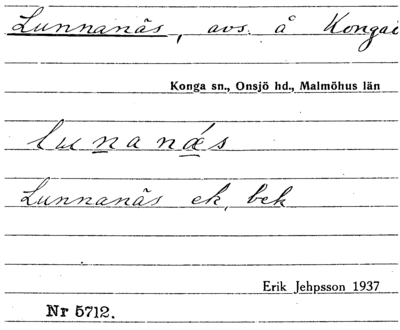 Lunnanäs, avs. å Konga
Konga sn., Onsjö hd., Malmöhus län
lunanǽs
Lunnanäs ek, bek
Erik Jehpsson 1937
Nr 5712.